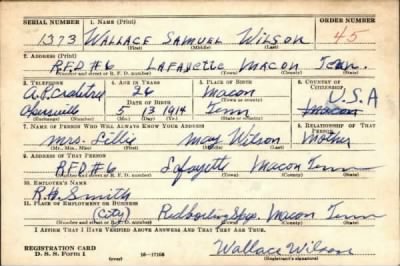 SERIAL NUMBER 1. NAME (Print) ORDER NUMBER
1373 WALLACE SAMUEL WILSON 45
(First) (Middle) (Last)
2. ADDRESS (Print)
R.F.D #6 LAFAYETTE MACON Tenn.
(Number and street or R. F. D. number) (Town) (County) (State)
3. TELEPHONE 4. AGE IN YEARS 5. PLACE OF BIRTH 6. COUNTRY OF CITIZENSHIP
A.P. Crabtree 26 Macon U.S.A
(Town or county)
DATE OF BIRTH Macon
5 13 1914 Tenn
(Exchange) (Number) (Mo.) (Day) (Yr.) (State or country)
7. NAME OF PERSON WHO WILL ALWAYS KNOW YOUR ADDRESS 8. RELATIONSHIP OF THAT PERSON
Mrs. Lillie May Wilson Mother
(Mr., Mrs., Miss) (First) (Middle) (Last)
9. ADDRESS OF THAT PERSON
R.F.D #6 Lafayette Macon Tenn
(Number and street or R. F. D. number) (Town) (County) (State)
10. EMPLOYER'S NAME
R.H. Smith
11. PLACE OF EMPLOYMENT OR BUSINESS
(City) Red boiling Spgs. Macon Tenn
(Number and street or R. F. D. number) (Town) (County) (State)
I AFFIRM THAT I HAVE VERIFIED ABOVE ANSWERS AND THAT THEY ARE TRUE.
REGISTRATION CARD
D. S. S. Form 1 (over) 16-17105 Wallace Wilson
(Registrant's signature)